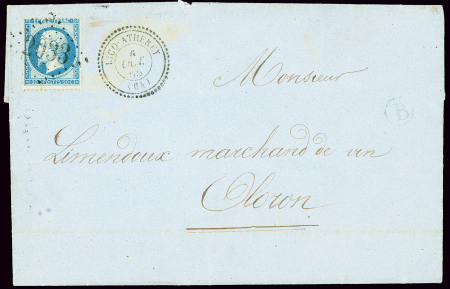 LICQ-ATHEREY
6
(64)
Monsieur
B
Limendoux marchand de vin
Oloron